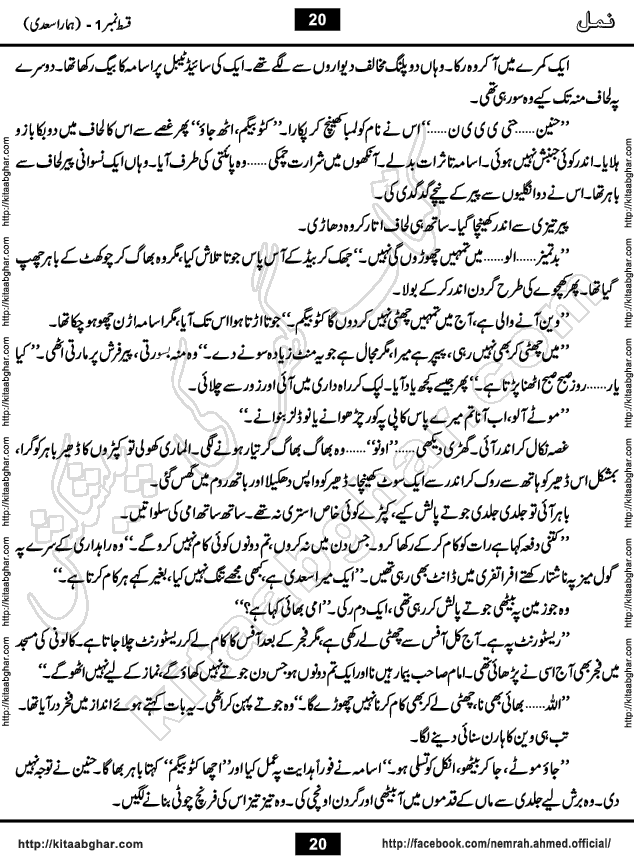 نمل
20
قسط نمبر 1 - (ہمارا سعدی)
ایک کمرے میں آ کر وہ رکا۔ وہاں دو پلنگ مخالف دیواروں سے لگے تھے۔ ایک کی سائیڈ ٹیبل پر اسامہ کا بیگ رکھا تھا۔ دوسرے
پہ لحاف منہ تک کیے وہ سو رہی تھی۔
’’حنین......حنی ی ی ی ن......‘‘ اس نے نام کو لمبا کھینچ کر پکارا۔ ’’کٹو بیگم، اٹھ جاؤ‘‘ پھر غصے سے اس کا لحاف میں دوبکا بازو
ہلایا۔ اندر کوئی جنبش نہیں ہوئی۔ اسامہ تاثرات بدلے۔ آنکھوں میں شرارت چمکی ......وہ پائنتی کی طرف آیا۔ وہاں ایک نسوانی پیر لحاف سے
باہر تھا۔ اس نے دو انگلیوں سے پیر کے نیچے گدگدی کی۔
پیر تیزی سے اندر کھینچا گیا۔ ساتھ ہی لحاف اتار کر وہ دھاڑی۔
’’بدتمیز......الو......میں تمہیں چھوڑوں گی نہیں۔‘‘ جھک کر بیڈ کے آس پاس جوتا تلاش کیا، مگر وہ بھاگ کر چوکھٹ کے باہر چھپ
گیا تھا۔ پھر کچھوے کی طرح گردن اندر کر کے بولا۔
’’وین آنے والی ہے، آج میں تمہیں چھٹی نہیں کر دوں گا کٹو بیگم۔‘‘ جوتا اڑتا ہوا اس تک آیا، مگر اسامہ اڑن چھو ہو چکا تھا۔
’’میں چھٹی کر بھی نہیں رہی، پیپر ہے میرا، مگر مجال ہے جو یہ منٹ زیادہ سونے دے۔‘‘ وہ منہ بسورتی، پیر فرش پر مارتی اٹھی۔ ’’کیا
یار......روز صبح صبح اٹھنا پڑتا ہے۔‘‘ پھر جیسے کچھ یاد آیا۔ لپک کر راہداری میں آئی اور زور سے چلائی۔
’’موٹے آلو، اب آنا تم میرے پاس کاپی پہ کور چڑھوانے یا نوڈلز بنوانے۔‘‘
غصہ نکال کر اندر آئی۔ گھڑی دیکھی......’’اونو‘‘......وہ بھاگ بھاگ کر تیار ہونے لگی۔ الماری کھولی تو کپڑوں کا ڈھیر باہر کو گرا،
بمشکل اس ڈھیر کو ہاتھ سے روک کر اندر سے ایک سوٹ کھینچا۔ ڈھیر کو واپس دھکیلا اور باتھ روم میں گھس گئی۔
باہر آئی تو جلدی جلدی جوتے پالش کیے، کپڑے کوئی خاص استری نہ تھے۔ ساتھ ساتھ امی کی سلواتیں۔
’’کتنی دفعہ کہا ہے رات کو کام کر کے رکھا کرو۔ جس دن میں نہ کروں، تم دونوں کوئی کام نہیں کرو گے۔‘‘ وہ راہداری کے سرے پہ
گول میز پہ ناشتا رکھتے افراتفری میں ڈانٹ بھی رہی تھیں۔ ’’ایک میرا سعدی ہے، کبھی مجھے تنگ نہیں کیا، بغیر کہے ہر کام کرتا ہے۔‘‘
وہ جو زمین پہ بیٹھی جوتے پالش کر رہی تھی، ایک دم رکی۔ ’’امی بھائی کہا ہے؟‘‘
’’ریسٹورنٹ پہ ہے۔ آج کل آفس سے چھٹی لے رکھی ہے، مگر فجر کے بعد آفس کا کام لے کر ریسٹورنٹ چلا جاتا ہے۔ کالونی کی مسجد
میں فجر بھی آج اسی نے پڑھائی تھی۔ امام صاحب بیمار ہیں نا اور ایک تم دونوں ہو جس دن جوتے نہیں کھاؤ گے، نماز کے لیے نہیں اٹھو گے۔‘‘
’’اللہ......بھائی بھی نا، چھٹی لے کر بھی کام کرنا نہیں چھوڑے گا۔‘‘ وہ جوتے پہن کر اٹھی۔ یہ بات کہتے ہوئے انداز میں فخر در آیا تھا۔
تب ہی وین کا ہارن سنائی دینے لگا۔
’’جاؤ موٹے، جا کر بیٹھو، انکل کو تسلی ہو۔‘‘ اسامہ نے فوراً ہدایت پہ عمل کیا اور ’’اچھا کٹو بیگم‘‘ کہتا باہر بھاگا۔ حنین نے توجہ نہیں
دی۔ وہ برش لیے جلدی سے ماں کے قدموں میں آ بیٹھی اور گردن اونچی کی۔ وہ تیز تیز اس کی فرنچ چوٹی بنانے لگیں۔
http://kitaabghar.com
20
http://facebook.com/nemrah.ahmed.official/